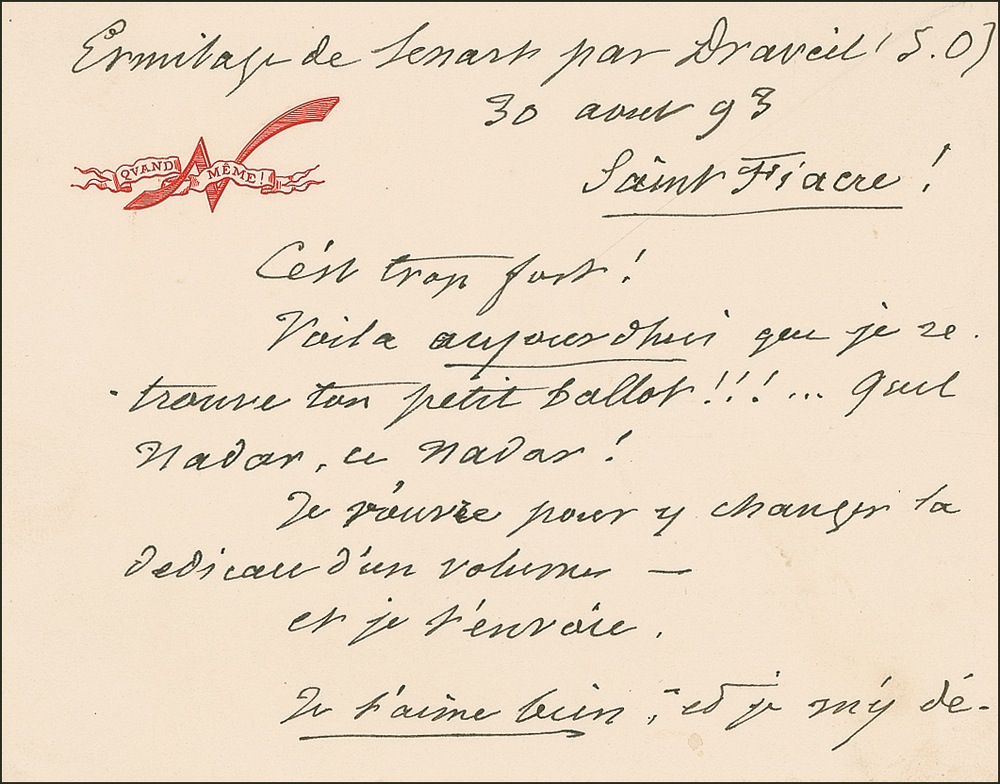 Ermitage de Senart par Draveil (S.O)
30 aout 93
QVAND MÊME!
Saint Fiacre !
C'est trop fort !
Voila aujourdhui que je re-
trouve ton petit ballot !!! ... Quel
Nadar, ce Nadar !
Je r'ouvre pour y changer la
dedicace d'un volume —
et je t'envoie.
Je t'aime bien, et je m'y dé-